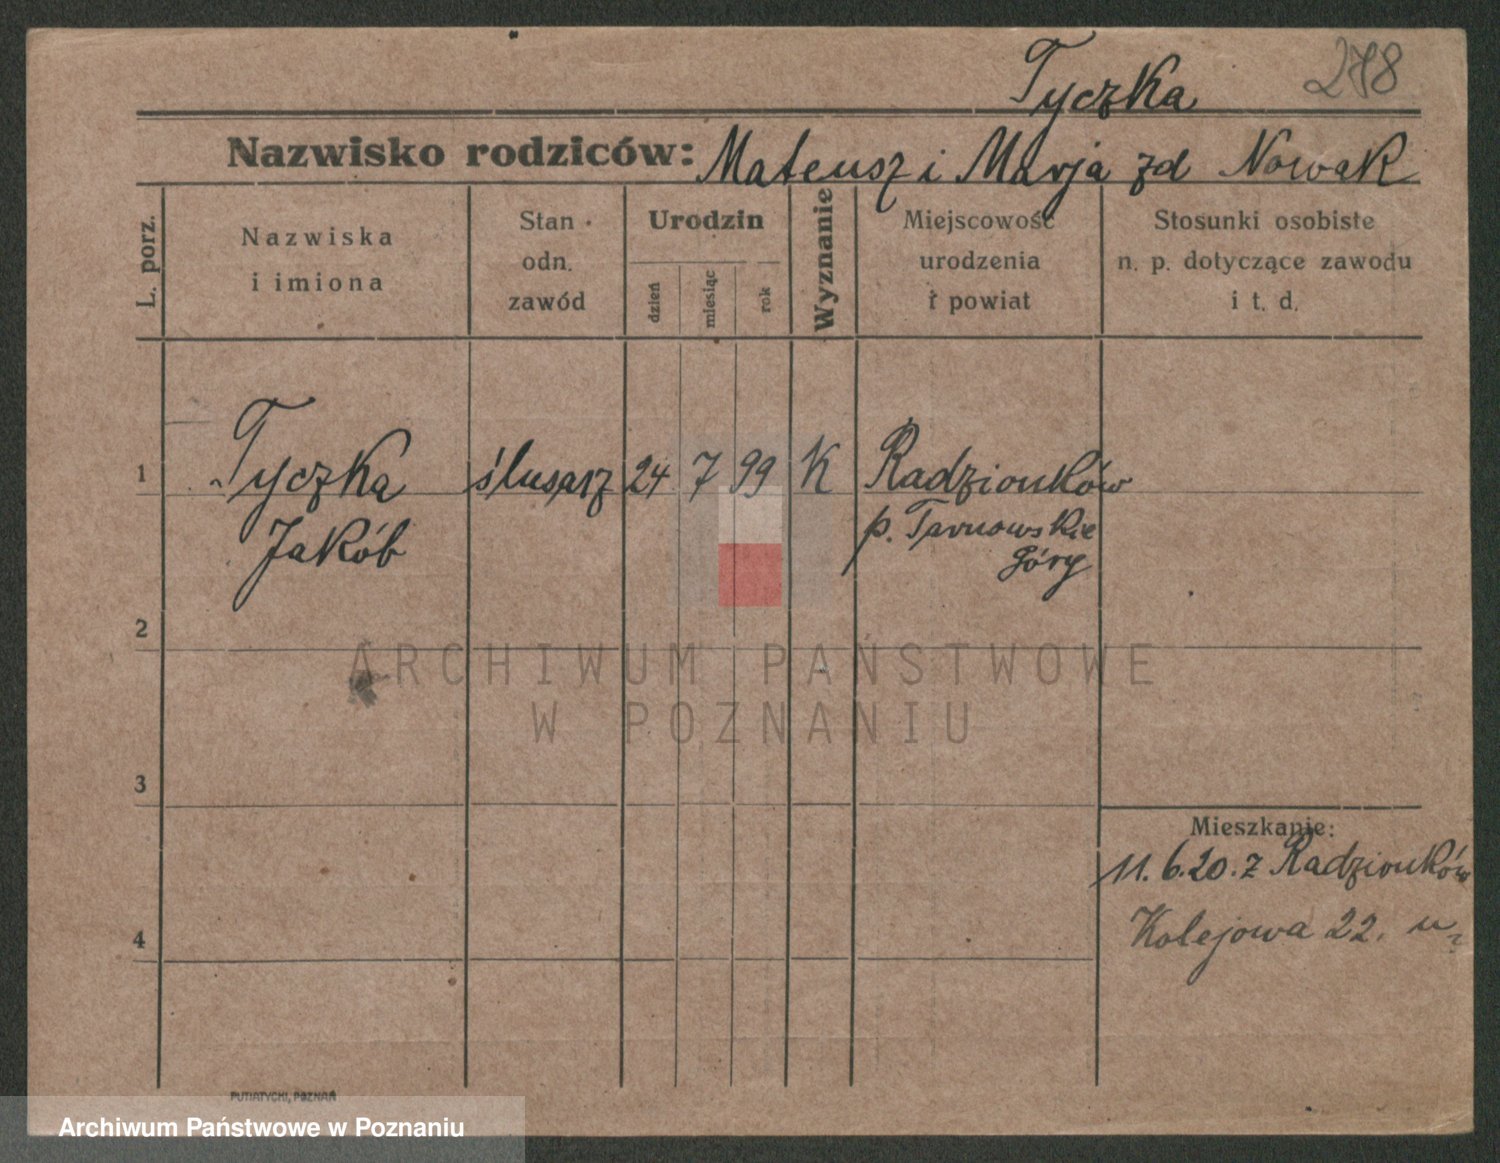 Tyczka 278
Nazwisko rodziców: Mateusz i Marja zd Nowak
L. porz.
Nazwiska
i imiona
Stan
odn.
zawód
Urodzin
dzień
miesiąc
rok
Wyznanie
Miejscowość
urodzenia
i powiat
Stosunki osobiste
n. p. dotyczące zawodu
i t. d.
1 Tyczka ślusarz 24 7 99 K Radzionków
Jakób p. Tarnowskie
Góry
2
ARCHIWUM PAŃSTWOWE
W POZNANIU
3
Mieszkanie:
11.6.20. z Radzionków
Kolejowa 22.
4
PUTIATYCKI, POZNAŃ
Archiwum Państwowe w Poznaniu